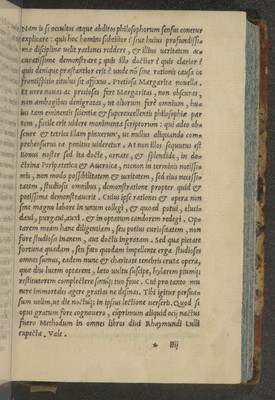 Nam si ſi occultos atque abditos philoſophorum ſenſus conetur
explicare: quis hoc homini ſubtiliter è ſuæ huius profundiſſi-
me diſciplina velit rationes reddere, & illius veritatem ac-
curatiſſime demonſtrare; quis illo doctior & quis clarior è
quis denique præſtantior erit è unde nō ſine rationis cauſa in
frontiſpitio titulus ſit affixus, Pretioſa Margarita nouella.
Et vere nouas ac pretioſas fert Margaritas, non obſcuras,
non ambagibus denigratas, ut aliorum ferè omnium, huic
tam eminentis ſcientiæ & ſupereexcellentis philoſophiæ par-
tem, facile erit videre manimenta ſcriptorum: qui adeo ob-
ſcure & tetrice illam pinxerunt, ut nullus aliquando com-
prehenſurus eā penitus videretur. At non illos ſequutus eſt
Bonus noſter ſed ita docte, ornate, & ſplendide, in do-
ctrina Peripatetica & Auerroica, necnon in terminis notiſſi-
mis, non modo poſſibilitatem & veritatem, ſed eius neceſſi-
tatem, ſtudioſis omnibus, demonſtratione propter quid &
potiſſima demonſtrauerit. Cuius ipſe rationes & opera non
ſine magno labore in unum collegi, & quoad potui, eluci-
daui, purgaui,auxi, & in optatum candorem redegi. Ope
tarem meam hanc diligentiam, ſeu potius curioſitatem, non
fore ſtudioſis inanem, aut doctis ingratam. Sed qua pietate
fortuna quadam, ſeu fato quodam impellente erga ſtudioſos
omnes ſumus, eadem nunc & charitate tenebris eruta opera,
quæ diu lucem optarent, læto vultu ſuſcipe, hylarem piumq;
reſtitutorem complectere ſinuq; tuo foue. Cui pro tanto mu
nere immortales agere gratias ne deſinas. Tibi igitur perſua-
ſum uelim,ut die noctuq; in ipſius lectione verſeris. Quod ſi
opus gratum fore cognouero, cùprimum aliquid ocij nactus
fuero Methodum in omnes libros diui Rhaymundi Lulli
expecta. Vale.
* iiij